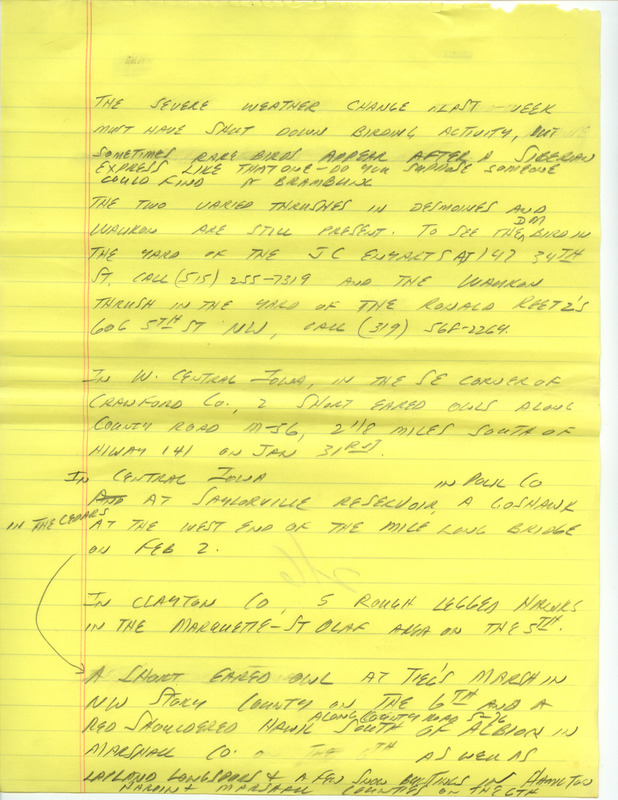 THE SEVERE WEATHER CHANGE LAST WEEK
MUST HAVE SHUT DOWN BIRDING ACTIVITY, BUT
SOMETIMES RARE BIRDS APPEAR AFTER A SIBERIAN
EXPRESS LIKE THAT ONE - DO YOU SUPPOSE SOMEONE
COULD FIND A BRAMBLING
THE TWO VARIED THRUSHES IN DESMOINES AND
WAUKON ARE STILL PRESENT. TO SEE THE DM BIRD IN
THE YARD OF THE J C ENYARTS AT 147 34TH
ST, CALL (515) 255-7319 AND THE WAUKON
THRUSH IN THE YARD OF THE RONALD REETZ'S
606 5TH ST NW, CALL (319) 568-2264.
IN W. CENTRAL IOWA, IN THE SE CORNER OF
CRAWFORD CO., 2 SHORT EARED OWLS ALONG
COUNTY ROAD M-56, 2 1/8 MILES SOUTH OF
HIWAY 141 ON JAN 31RST.
IN CENTRAL IOWA IN POLK CO
AND AT SAYLORVILLE RESERVOIR, A GOSHAWK
IN THE CEDARS AT THE WEST END OF THE MILE LONG BRIDGE
ON FEB 2.
IN CLAYTON CO, 5 ROUGH LEGGED HAWKS
IN THE MARQUETTE-ST OLAF AREA ON THE 5TH.
A SHORT EARED OWL AT TIEG'S MARSH IN
NW STORY COUNTY ON THE 6TH AND A
RED SHOULDERED HAWK ALONG COUNTY ROAD S-76 SOUTH OF ALBION IN
MARSHALL CO. ON THE 6TH AS WELL AS
LAPLAND LONGSPURS & A FEW SNOW BUNTINGS IN HAMILTON
HARDIN & MARSHALL COUNTIES ON THE 6TH